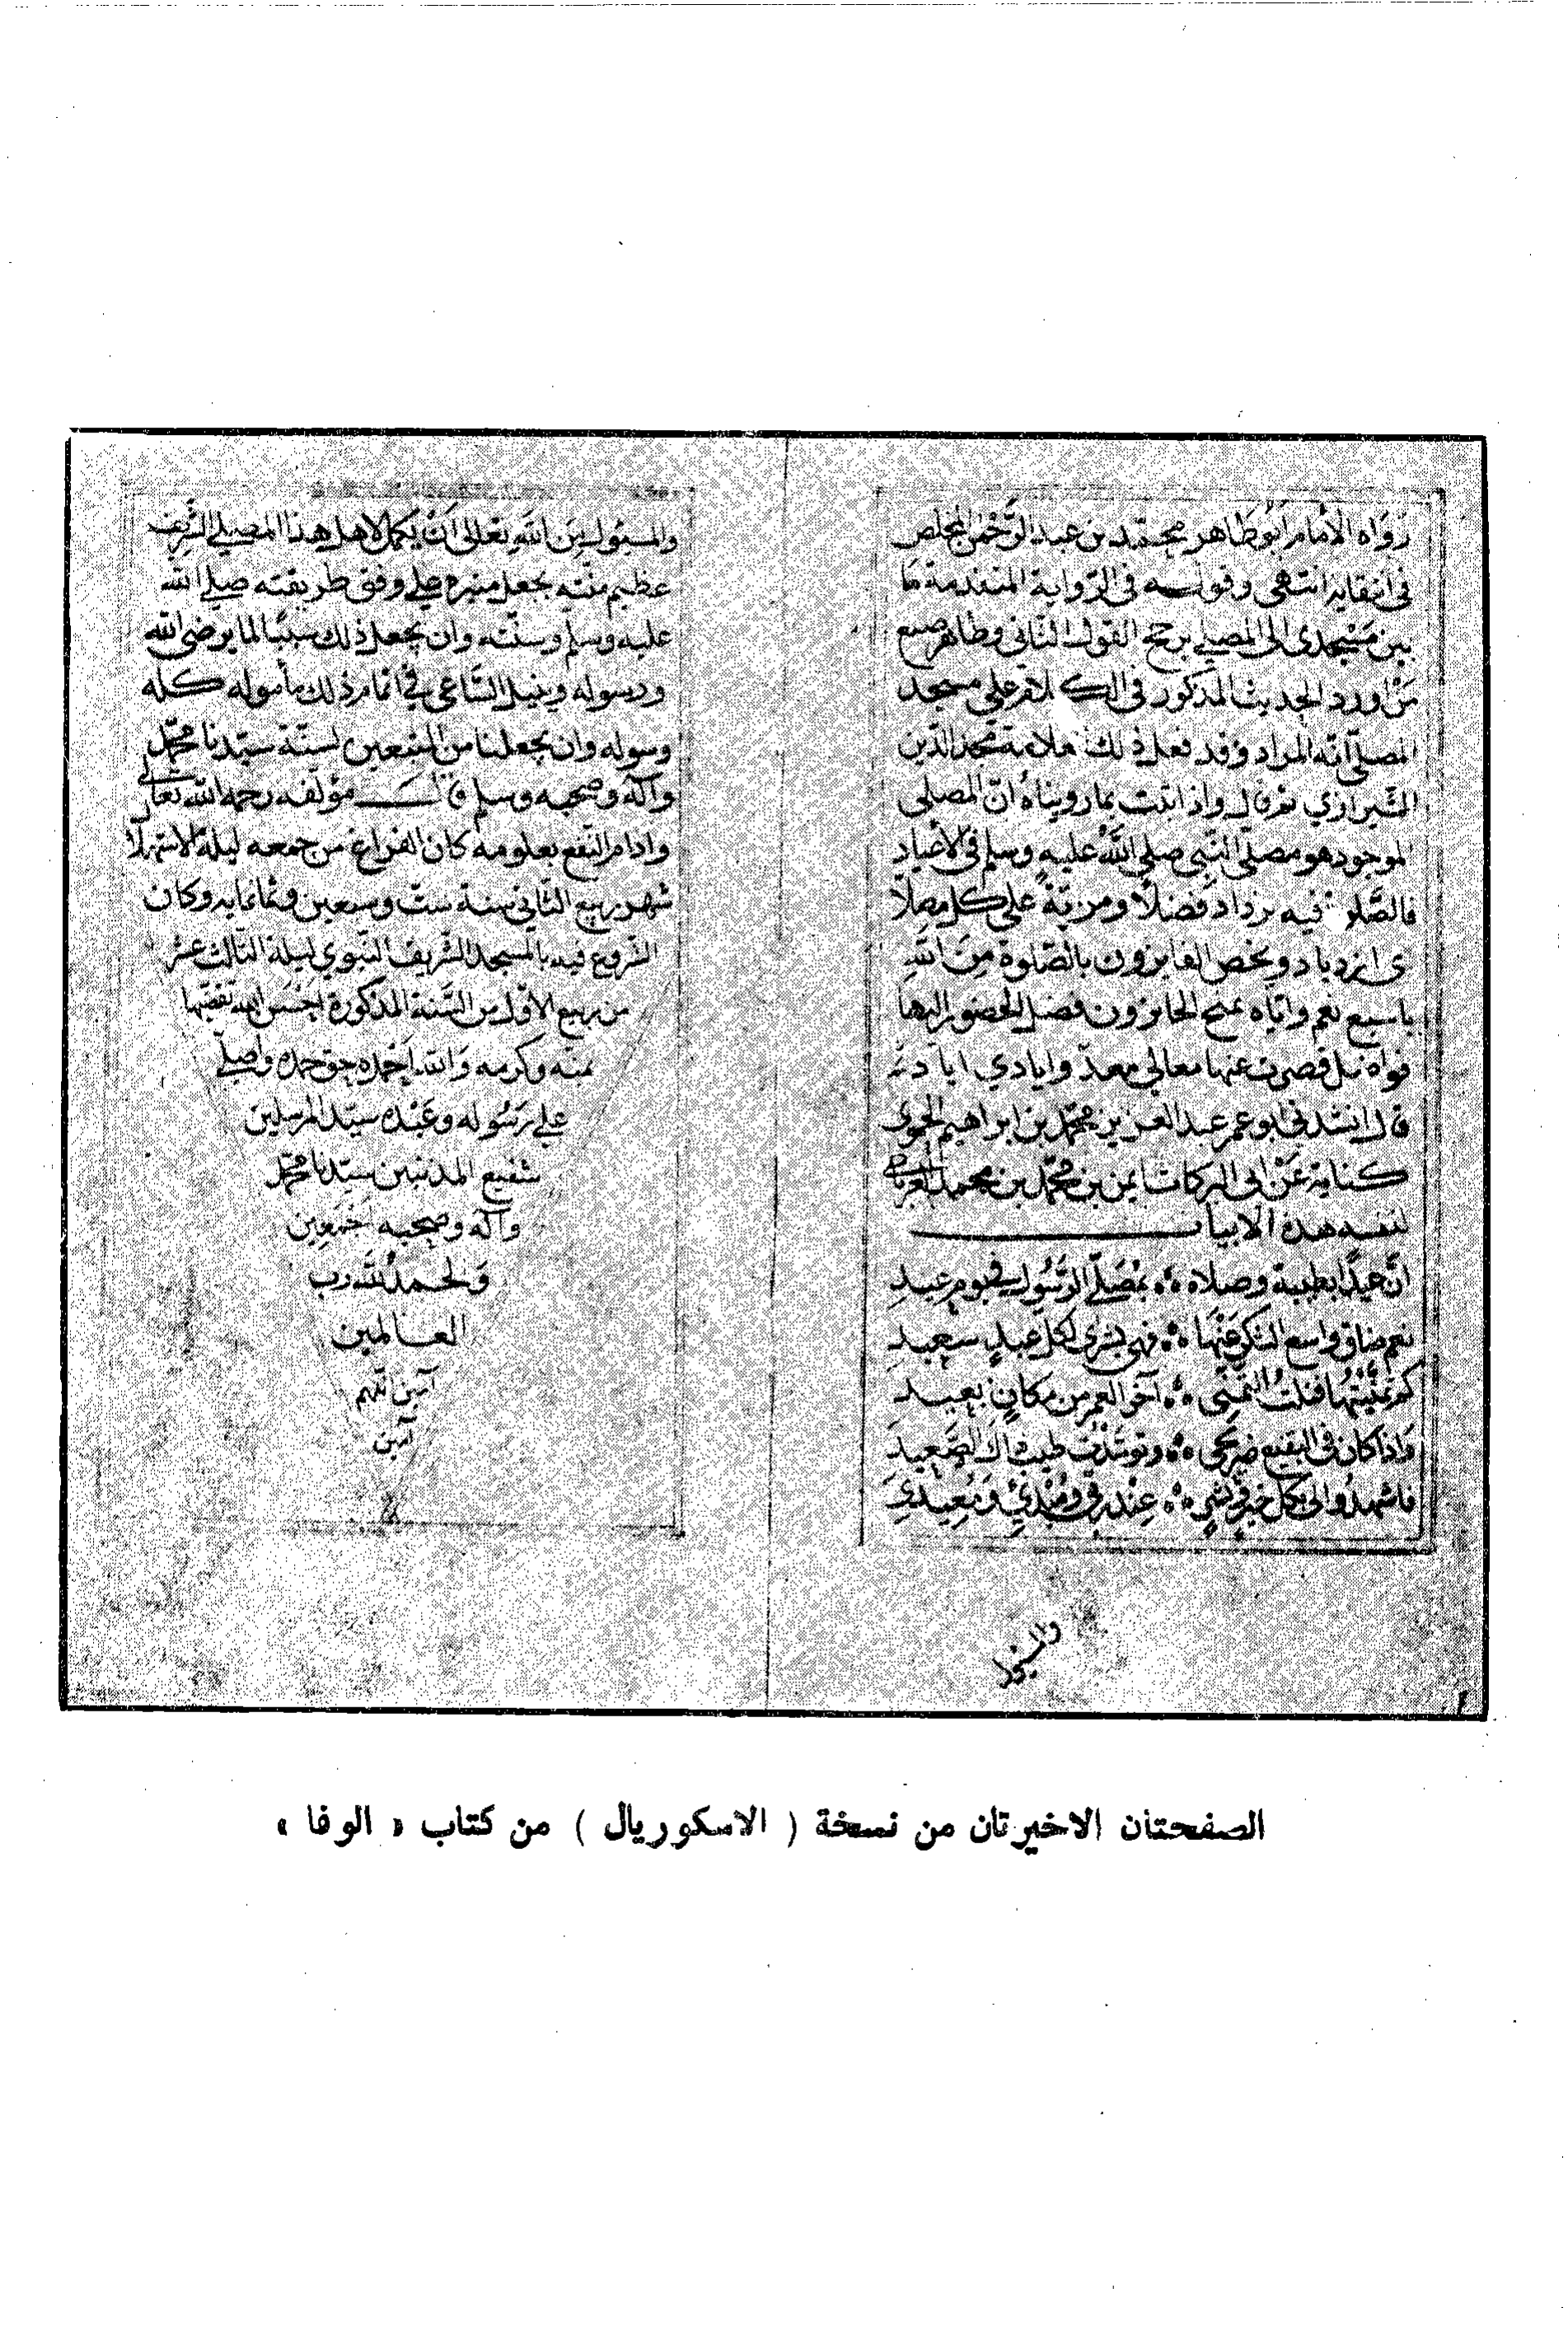 رَوَاه الامام ابُو طَاهر محمّد بن عبد الرَّحمن المخلص
في انتقايه انتهى وقوله في الرّواية المتقدمة مَا
بين مسْجدى الى المصلى يرجح القول الثاني وظاهر صنيع
مَنْ اورد الحديث المذكور فى الكلام على مسجد
المصلّى انّه المراد وقد فعل ذلك العلامة مجد الدّين
الشّيرازي ثم قال واذا ثبت بما رويناهُ انّ المصلى
الموجود هو مصلى النّبي صلى اللّه عليه وسلم فى الاعياد
فالصَّلوة فيه تزداد فضلاً ومزيّة على كل مصلا
ى ازدياد ويخص الفايزون بالصّلوة مِن اللّهِ
باسبغ نعم واياه يمنح الحايزون فضل الحضور اليها
فواضل قصرت عنها معالي معدّ وايادي اياد ثمّ
قال انشدني ابو عمر عبد العزيز بن محمّد بن ابراهيم الحموى
كتابة عَنْ ابى البركات ايمن بن محمّد بن محمد الغرناطى
لنفسه هذه الابيات
انّ عيدًا بطيبة وصلاةً بمصَلّى الرَّسُول فى يوم عيدِ
نعم ضاق واسع الشكر عَنْهَا فهى بشرى لكل عبدٍ سعيد
كم تمنّيتُهَا فنلتُ التمنّى آخر العمر من مكانٍ بعيد
وَاذا كان فى البقيع ضريحى وتوسّدْتُ طيب ذاك الصَّعيدِ
فاشهدُوا لى بكل خيرٍ فَشَىءٍ عِنْد ربّى ومُبْدىءٍ وَمُعِيدى
والمسئول
والمسئول مِنَ اللّهِ تعالى اَنْ يكمل لاهل هذا المصلى الشَّريف
عظيم منّته بجعل منبره على وفق طريقته صلى اللّه
عليه وسلم وسنّته وان يجعل ذلك سببًا لما يرضى اللّه
ورسوله وينيل السَّاعى في اتمام ذلك مأموله كله
وسوله وان يجعلنا من المتبعين لسنّة سيّدنا محمّد
وآله وصحبه وسلم قال مؤلفه رحمه اللّه تعالى
وادام النّفع بعلومه كان الفراغ من جمعه ليلة الاستهلال
شهر ربيع الثّاني سنة ستّ وسبعين وثمانمايه وكان
الشّروع فيه بالمسجد الشّريف النّبوي ليلة الثالث عشر
من ربيع الاوّل من السّنة المذكورة احْسَن اللّه تقضّيها
بمنّه وكرمه وَاللّه احْمده حق حمده واصلّى
على رسُوله وعَبْده سيّد المرسلين
شفيع المذنبين سيّدنا محمّد
وآله وصحبه اجمَعِين
وَالحمدُ للّه رب
العالمين
آمين اللهم
آمين
الصفحتان الاخيرتان من نسخة ( الاسكوريال ) من كتاب « الوفا »